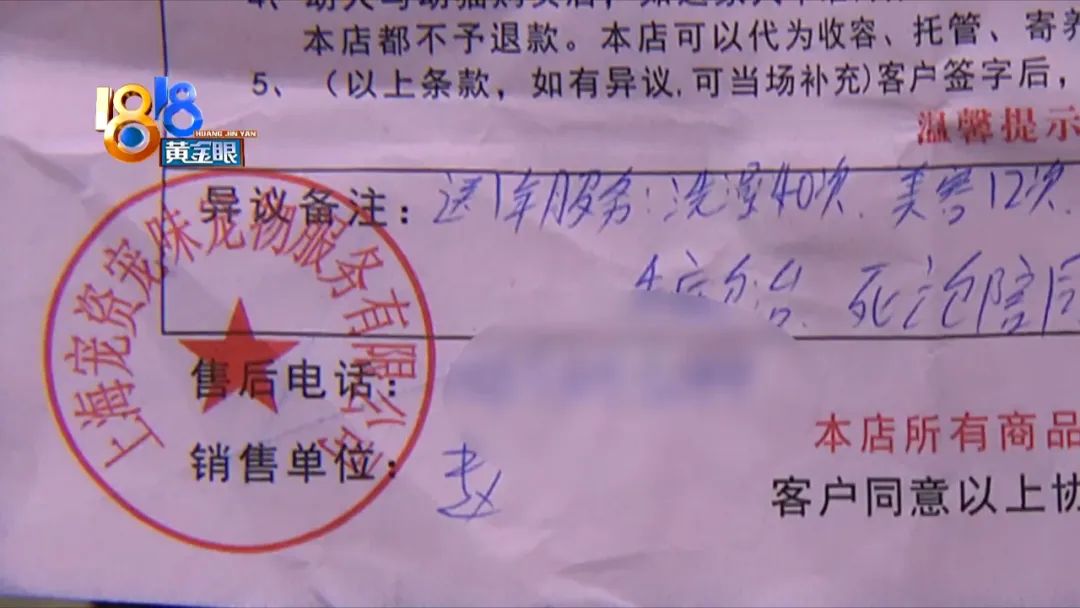 本店都不予退款。本店可以代为收容、托管、寄养
5、（以上条款，如有异议,可当场补充)客户签字后，
1818
HUANG JIN YAN
黄金眼
温馨提示
异议备注：送1年服务：洗澡40次、美容12次
死治陪同
上海宠资宠味宠物服务有限公司
售后电话：
销售单位：赵
本店所有商品
客户同意以上协